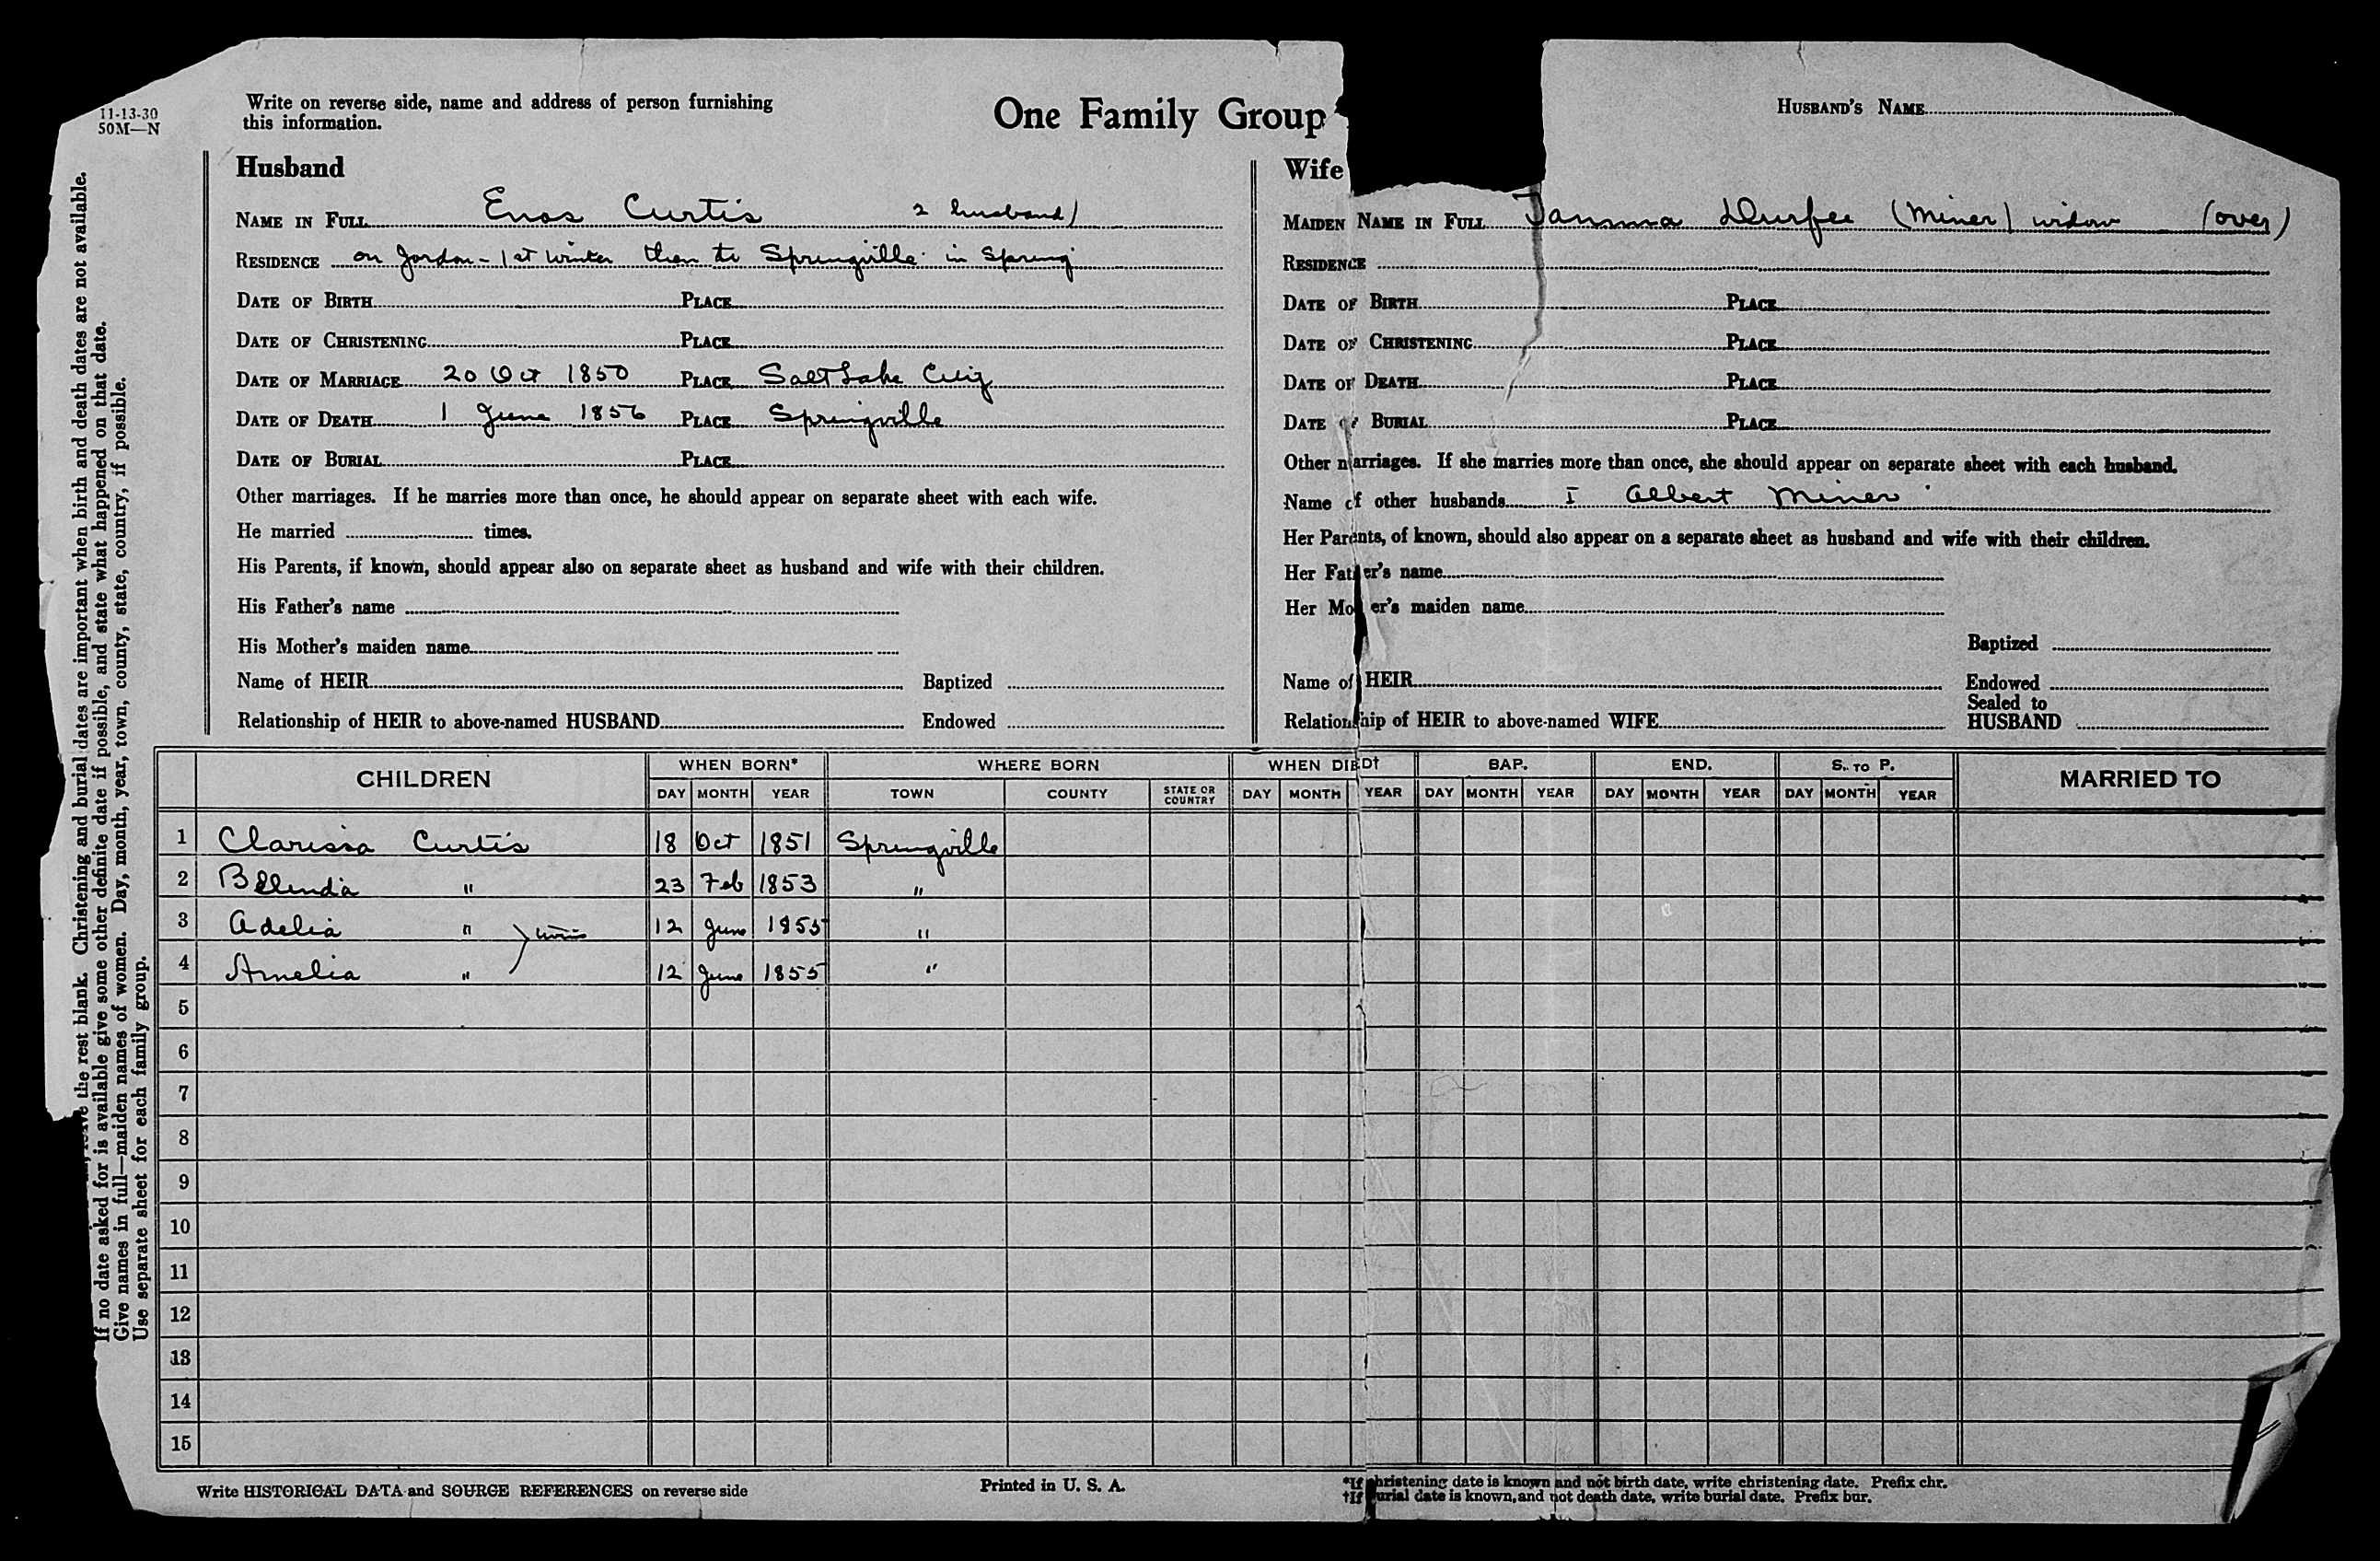 11-13-30
50M—N
Write on reverse side, name and address of person furnishing
this information.
One Family Group
HUSBAND'S NAME
Husband
NAME IN FULL Enos Curtis 2 husband)
RESIDENCE on Jordan - 1st Winter then to Springville in Spring
DATE OF BIRTH PLACE
DATE OF CHRISTENING PLACE
DATE OF MARRIAGE 20 Oct 1850 PLACE Salt Lake City
DATE OF DEATH 1 June 1856 PLACE Springville
DATE OF BURIAL PLACE
Other marriages. If he marries more than once, he should appear on separate sheet with each wife.
He married times.
His Parents, if known, should appear also on separate sheet as husband and wife with their children.
His Father's name
His Mother's maiden name
Name of HEIR Baptized
Relationship of HEIR to above-named HUSBAND Endowed
Wife
MAIDEN NAME IN FULL Tamma Durfee (Miner) widow (over)
RESIDENCE
DATE OF BIRTH PLACE
DATE OF CHRISTENING PLACE
DATE OF DEATH PLACE
DATE OF BURIAL PLACE
Other marriages. If she marries more than once, she should appear on separate sheet with each husband.
Name of other husbands I Albert Miner
Her Parents, of known, should also appear on a separate sheet as husband and wife with their children.
Her Father's name
Her Mother's maiden name
Baptized
Name of HEIR Endowed
Sealed to
Relationship of HEIR to above-named WIFE HUSBAND
CHILDREN WHEN BORN* WHERE BORN WHEN DIED† BAP. END. S. TO P. MARRIED TO
DAY MONTH YEAR TOWN COUNTY STATE OR COUNTRY DAY MONTH YEAR DAY MONTH YEAR DAY MONTH YEAR DAY MONTH YEAR
1 Clarissa Curtis 18 Oct 1851 Springville
2 Bllinda " 23 Feb 1853 "
3 Adelia " 12 June 1855 "
4 Amelia " 12 June 1855 "
5
6
7
8
9
10
11
12
13
14
15
Write HISTORICAL DATA and SOURCE REFERENCES on reverse side
Printed in U. S. A.
*If christening date is known and not birth date, write christening date. Prefix chr.
†If burial date is known, and not death date, write burial date. Prefix bur.
the rest blank. Christening and burial dates are important when birth and death dates are not available.
If no date asked for is available give some other definite date if possible, and state what happened on that date.
Give names in full—maiden names of women. Day, month, year, town, county, state, country, if possible.
Use separate sheet for each family group.